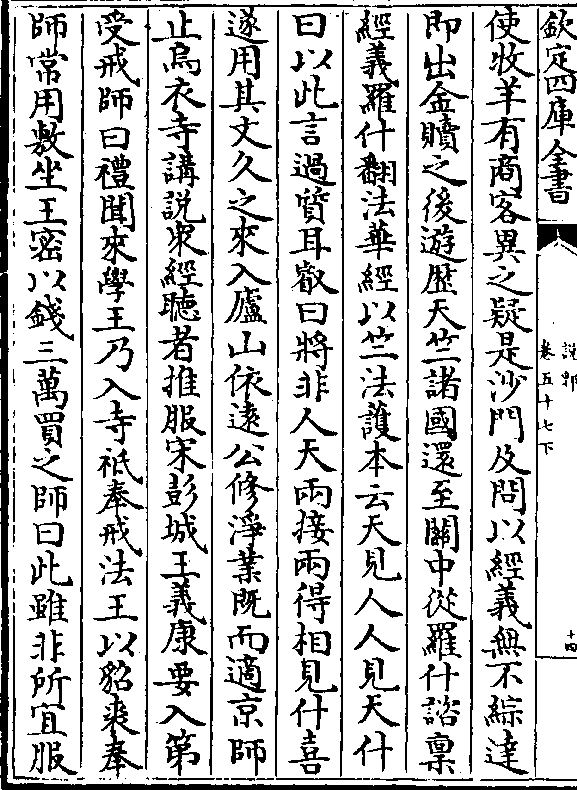 欽定四庫全書
說郛
卷五十七下
十四
使牧羊有商客異之疑是沙門及問以經義無不綜達
即出金贖之後遊歷天竺諸國還至關中從羅什諮稟
經義羅什翻法華經以竺法護本云天見人人見天什
曰以此言過質耳叡曰將非人天兩接兩得相見什喜
遂用其文久之來入廬山依遠公修淨業既而適京師
止烏衣寺講說衆經聽者推服宋彭城王義康要入第
受戒師曰禮聞來學王乃入寺祗奉戒法王以貂裘奉
師常用敷坐王密以錢三萬買之師曰此雖非所宜服